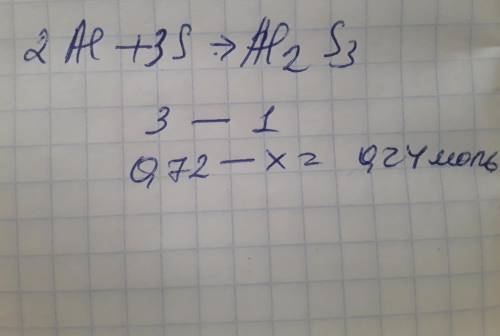 2 Al + 3S → Al2 S3
3 — 1
0,72 — x = 0,24 моль